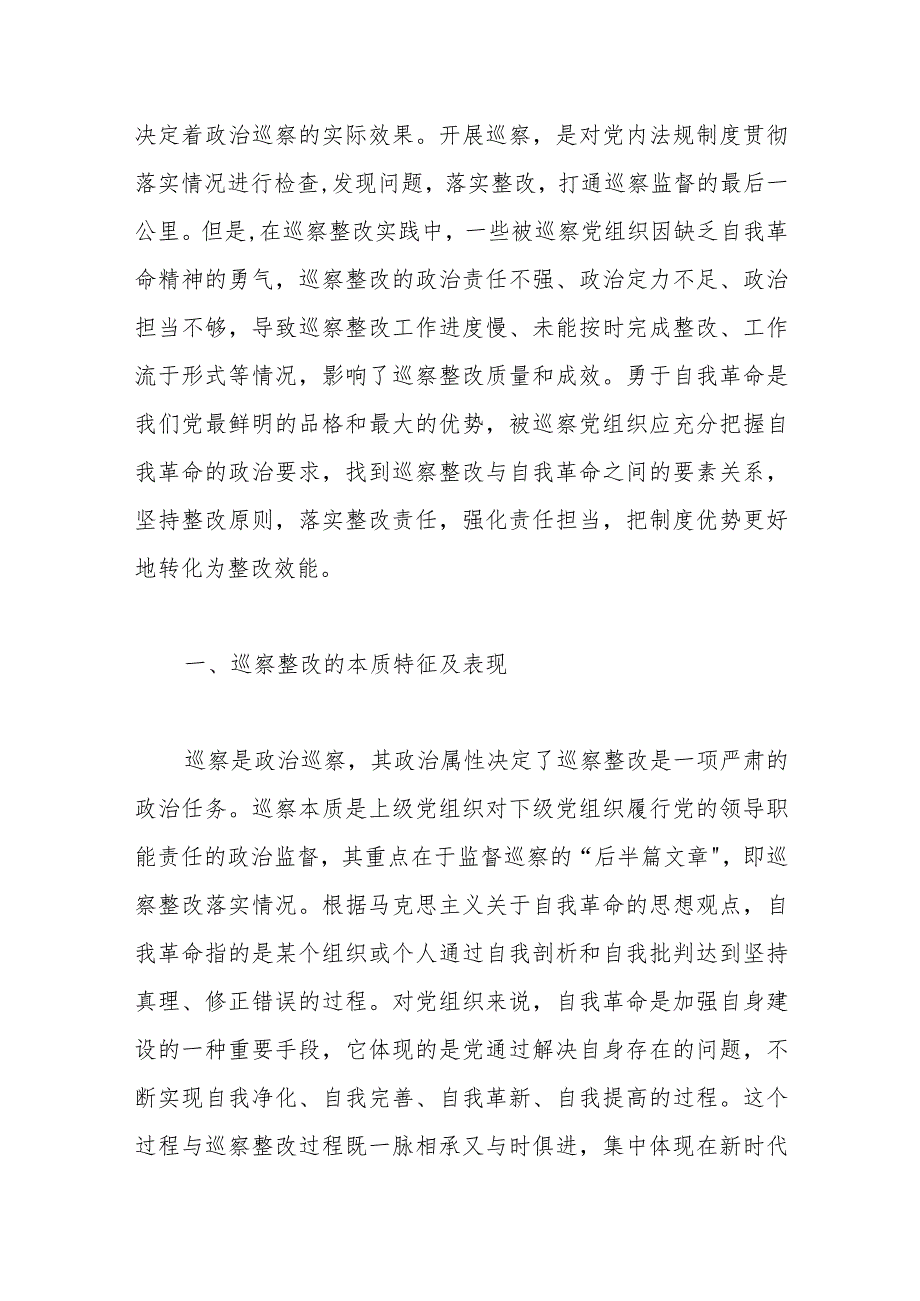 决定着政治巡察的实际效果。开展巡察，是对党内法规制度贯彻
落实情况进行检查,发现问题，落实整改，打通巡察监督的最后一
公里。但是,在巡察整改实践中，一些被巡察党组织因缺乏自我革
命精神的勇气，巡察整改的政治责任不强、政治定力不足、政治
担当不够，导致巡察整改工作进度慢、未能按时完成整改、工作
流于形式等情况，影响了巡察整改质量和成效。勇于自我革命是
我们党最鲜明的品格和最大的优势，被巡察党组织应充分把握自
我革命的政治要求，找到巡察整改与自我革命之间的要素关系，
坚持整改原则，落实整改责任，强化责任担当，把制度优势更好
地转化为整改效能。
一、巡察整改的本质特征及表现
巡察是政治巡察，其政治属性决定了巡察整改是一项严肃的
政治任务。巡察本质是上级党组织对下级党组织履行党的领导职
能责任的政治监督，其重点在于监督巡察的“后半篇文章"，即巡
察整改落实情况。根据马克思主义关于自我革命的思想观点，自
我革命指的是某个组织或个人通过自我剖析和自我批判达到坚持
真理、修正错误的过程。对党组织来说，自我革命是加强自身建
设的一种重要手段，它体现的是党通过解决自身存在的问题，不
断实现自我净化、自我完善、自我革新、自我提高的过程。这个
过程与巡察整改过程既一脉相承又与时俱进，集中体现在新时代